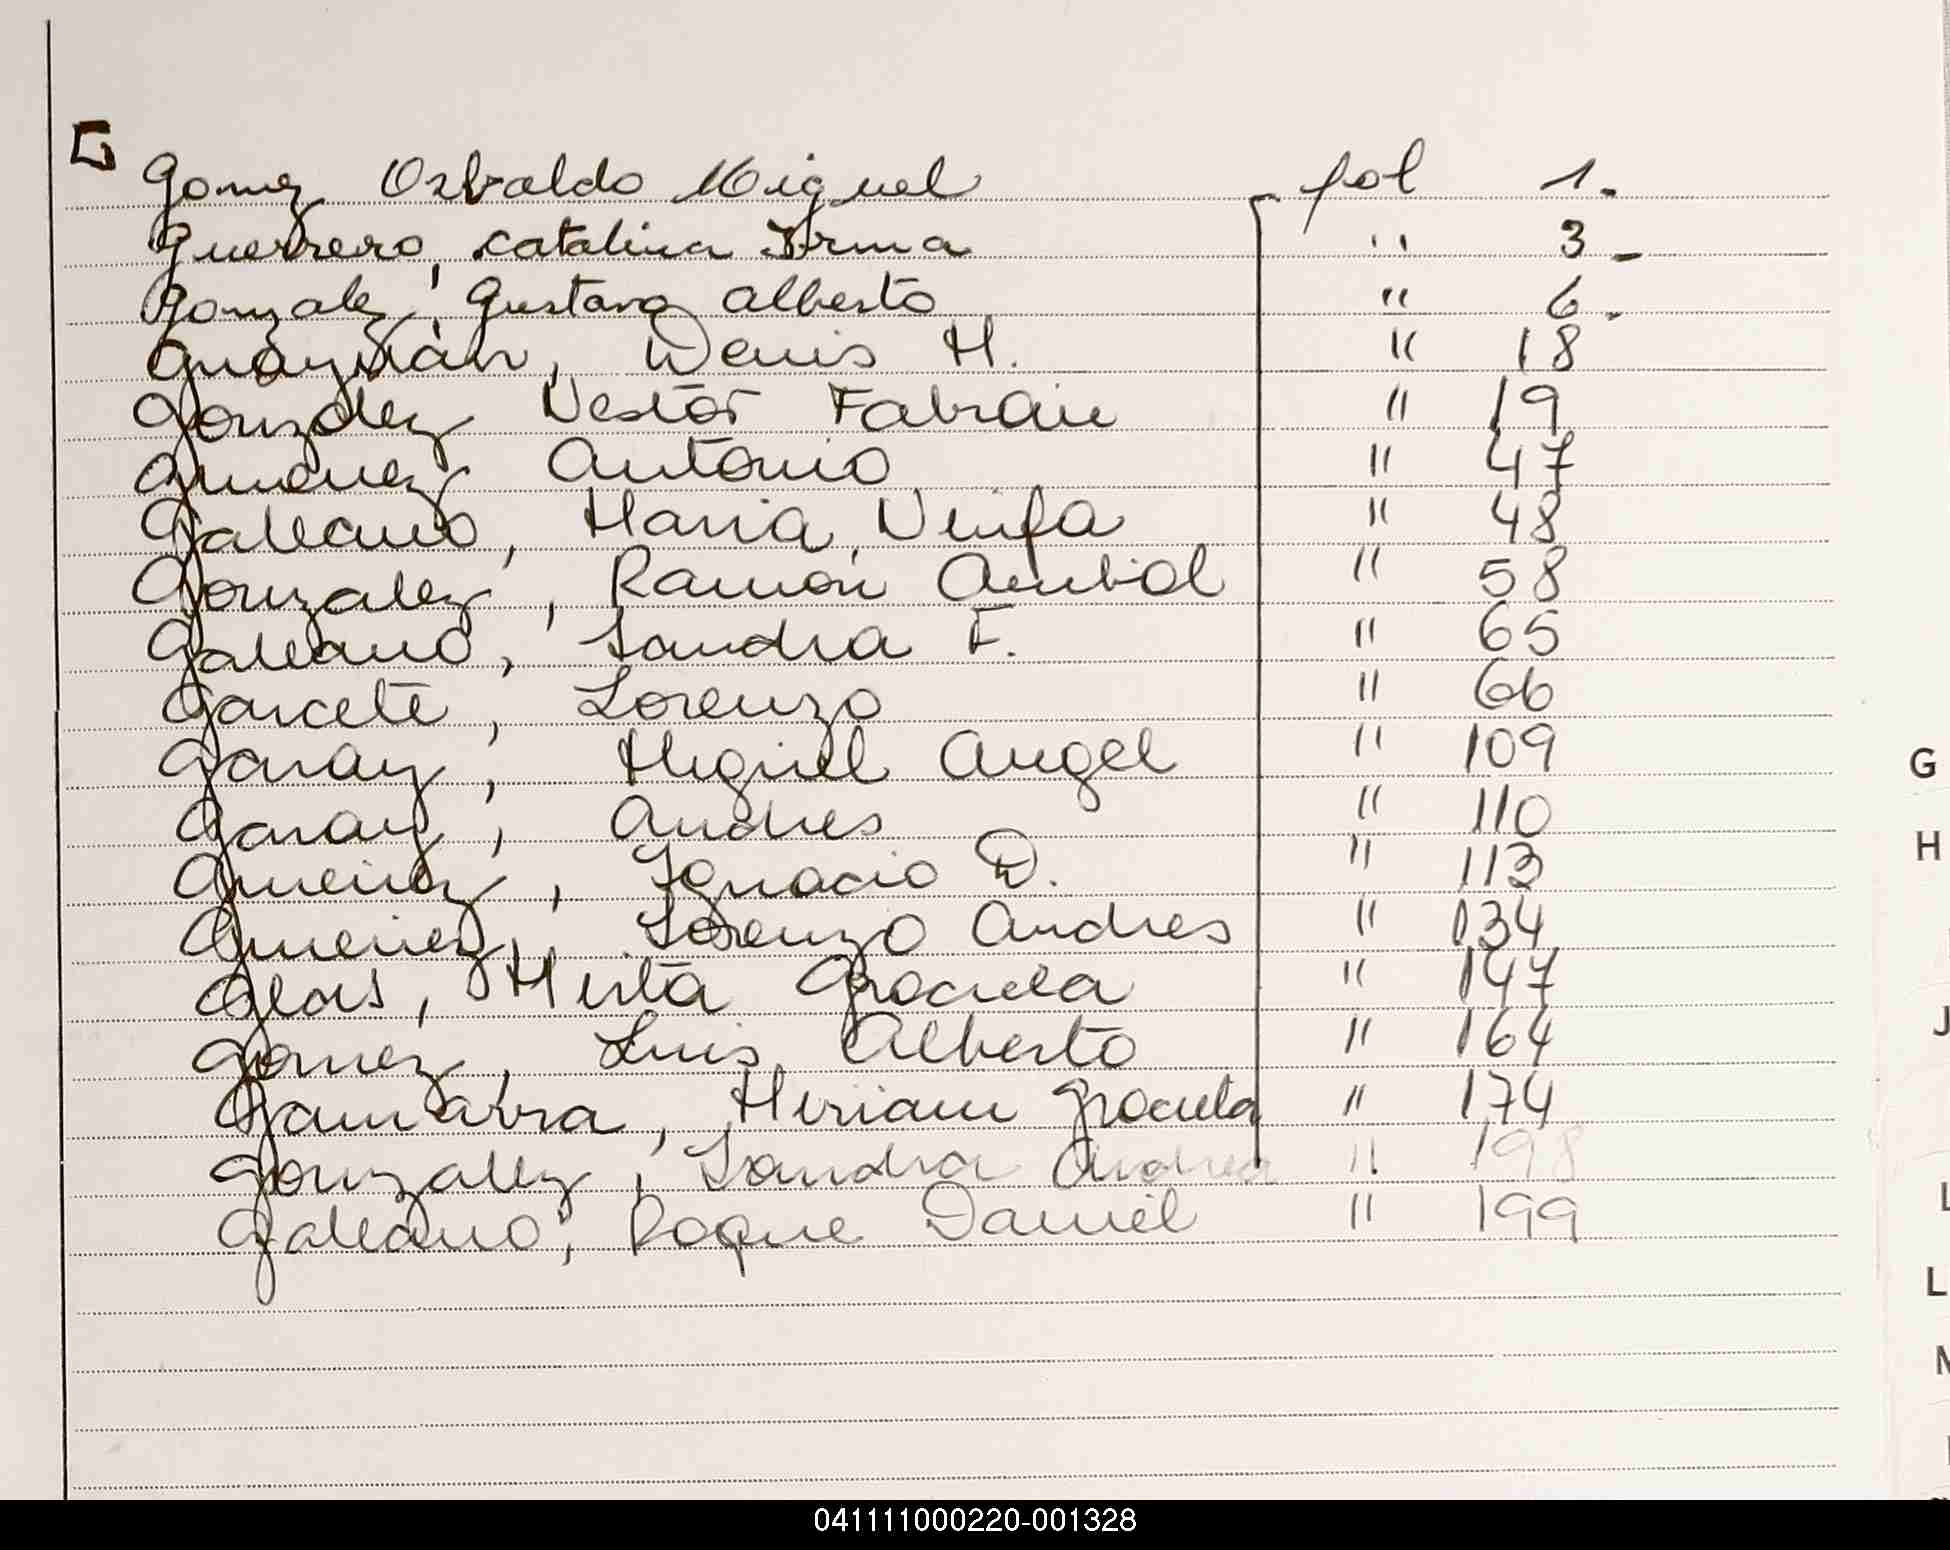 G
Gomez Osbaldo Miguel fol 1.-
Guerrero, Catalina Irma " 3.-
Gonzalez, Gustavo Alberto " 6.-
Guaymán, Denis H. " 18
González Nestor Fabián " 19
Gimenez Antonio " 47
Galeano, Maria Ninfa " 48
Gonzalez, Ramón Anibal " 58
Galeano, Sandra F. " 65
Garcete, Lorenzo " 66
Garay, Miguel Angel " 109
Garay, Andres " 110
Gimenez, Ignacio D. " 113
Gimenez, Lorenzo Andres " 134
Glas, Mirta Graciela " 147
Gomez, Luis Alberto " 164
Gamarra, Miriam Graciela " 174
Gonzalez, Sandra Andrea " 198
Galeano, Roque Daniel " 199
G
H
J
L
L
M
041111000220-001328